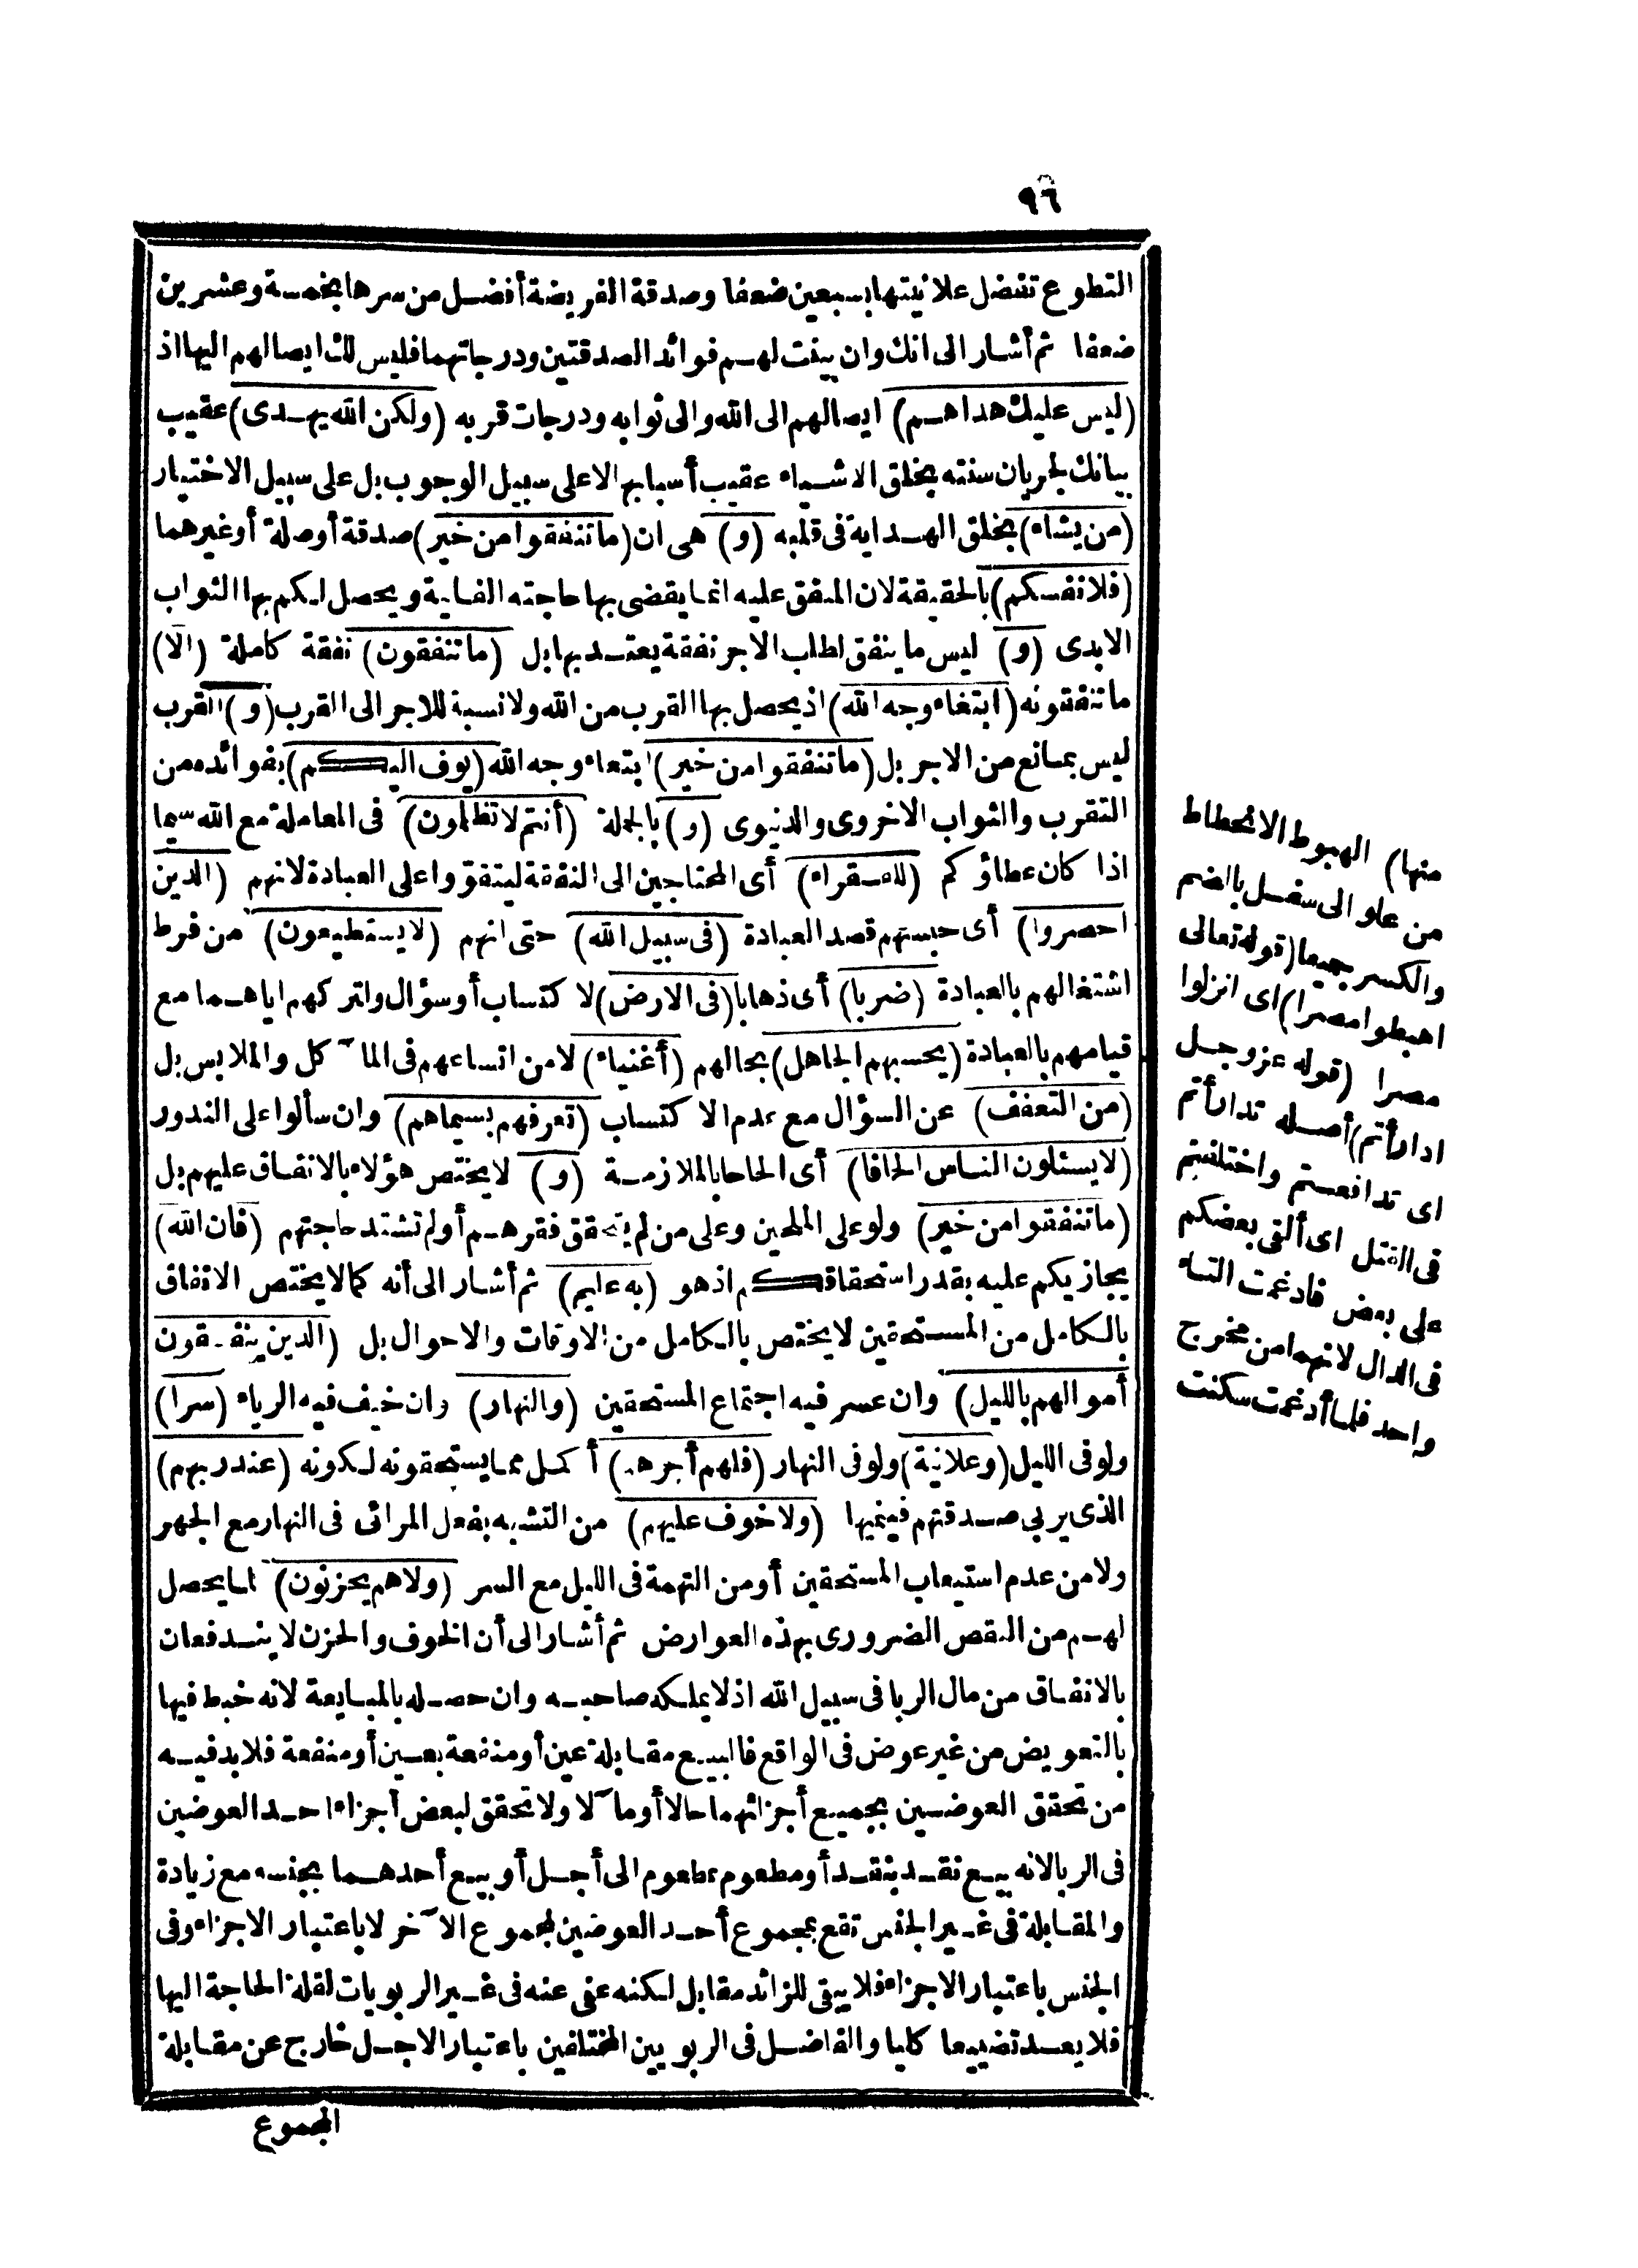 ٩٦
التطوع تفضل علانيتها بسبعين ضعفا وصدقة الفريضة أفضل من سرها بخمسة وعشرين
ضعفا ثم أشار الى انك وان بينت لهم فوائد الصدقتين ودرجاتهما فليس لك ايصالهم اليها اذ
(ليس عليك هداهم) ايصالهم الى الله والى ثوابه ودرجات قربه (ولكن الله يهدى) عقيب
بيانك لجريان سنته بخلق الاشياء عقيب أسبابها لا على سبيل الوجوب بل على سبيل الاختيار
(من يشاء) بخلق الهداية فى قلبه (و) هى ان (ما تنفقوا من خير) صدقة أو صلة أو غيرهما
(فلانفسكم) بالحقيقة لان المنفق عليه انما يقضى بها حاجته الفانية ويحصل لكم بها الثواب
الابدى (و) ليس ما ينفق لطلب الاجر نفقة يعتد بها بل (ما تنفقون) نفقة كاملة (الا)
ما تنفقونه (ابتغاء وجه الله) اذ يحصل بها القرب من الله ولا نسبة للاجر الى القرب (و) القرب
ليس بمانع من الاجر بل (ما تنفقوا من خير) ابتغاء وجه الله (يوف اليكم) بفوائده من
التقرب والثواب الاخروى والدنيوى (و) بالجملة (أنتم لا تظلمون) فى المعاملة مع الله سيما
اذا كان عطاؤكم (للفقراء) أى المحتاجين الى النفقة ليتقووا على العبادة لانهم (الذين
احصروا) أى حبستهم قصد العبادة (فى سبيل الله) حتى انهم (لا يستطيعون) من فرط
اشتغالهم بالعبادة (ضربا) أى ذهابا (فى الارض) لا كتساب أو سؤال ولتركهم اياهما مع
قيامهم بالعبادة (يحسبهم الجاهل) بحالهم (أغنياء) لا من اتساعهم فى المآكل والملابس بل
(من التعفف) عن السؤال مع عدم الاكتساب (تعرفهم بسيماهم) وان سألوا على الندور
(لا يسئلون الناس الحافا) أى الحاحا بالملازمة (و) لا يختص هؤلاء بالانفاق عليهم بل
(ما تنفقوا من خير) ولو على الملحين وعلى من لم يتحقق فقرهم أو لم تشتد حاجتهم (فان الله)
يجازيكم عليه بقدر استحقاقكم اذ هو (به عليم) ثم أشار الى أنه كما لا يختص الانفاق
بالكامل من المستحقين لا يختص بالكامل من الاوقات والاحوال بل (الذين ينفقون
أموالهم بالليل) وان عسر فيه اجتماع المستحقين (والنهار) وان خيف فيه الرياء (سرا)
ولو فى الليل (وعلانية) ولو فى النهار (فلهم أجرهم) أكمل مما يستحقونه لكونه (عند ربهم)
الذى يربى صدقتهم فينميها (ولا خوف عليهم) من التشبه بفعل المرائى فى النهار مع الجهر
ولا من عدم استيعاب المستحقين أو من التهمة فى الليل مع السر (ولا هم يحزنون) لما يحصل
لهم من النقص الضرورى بهذه العوارض ثم أشار الى أن الخوف والحزن لا يندفعان
بالانفاق من مال الربا فى سبيل الله اذ لا يملكه صاحبه وان حصله بالمبايعة لانه خبط فيها
بالتعويض من غير عوض فى الواقع فالبيع مقابلة عين أو منفعة بعين أو منفعة فلا بد فيه
من تحقق العوضين بجميع أجزائهما حالا أو مآلا ولا تحقق لبعض أجزاء احد العوضين
فى الربا لانه بيع نقد بنقد أو مطعوم بمطعوم الى أجل أو بيع أحدهما بجنسه مع زيادة
والمقابلة فى غير الجنس تقع بمجموع أحد العوضين لمجموع الآخر لا باعتبار الاجزاء وفى
الجنس باعتبار الاجزاء فلا يبقى للزائد مقابل لكنه عفى عنه فى غير الربويات لقلة الحاجة اليها
فلا يعد تضييعا كليا والفاضل فى الربويين المختلفين باعتبار الاجل خارج عن مقابلة
المجموع
منها) الهبوط الانحطاط
من علو الى سفل بالضم
والكسر جميعا (قوله تعالى
اهبطوا مصرا) اى انزلوا
مصرا (قوله عز وجل
ادارأتم) أصله تدارأتم
اى تدافعتم واختلفتم
فى القتل اى ألقى بعضكم
على بعض فادغمت التاء
فى الدال لانهما من مخرج
واحد فلما أدغمت سكنت